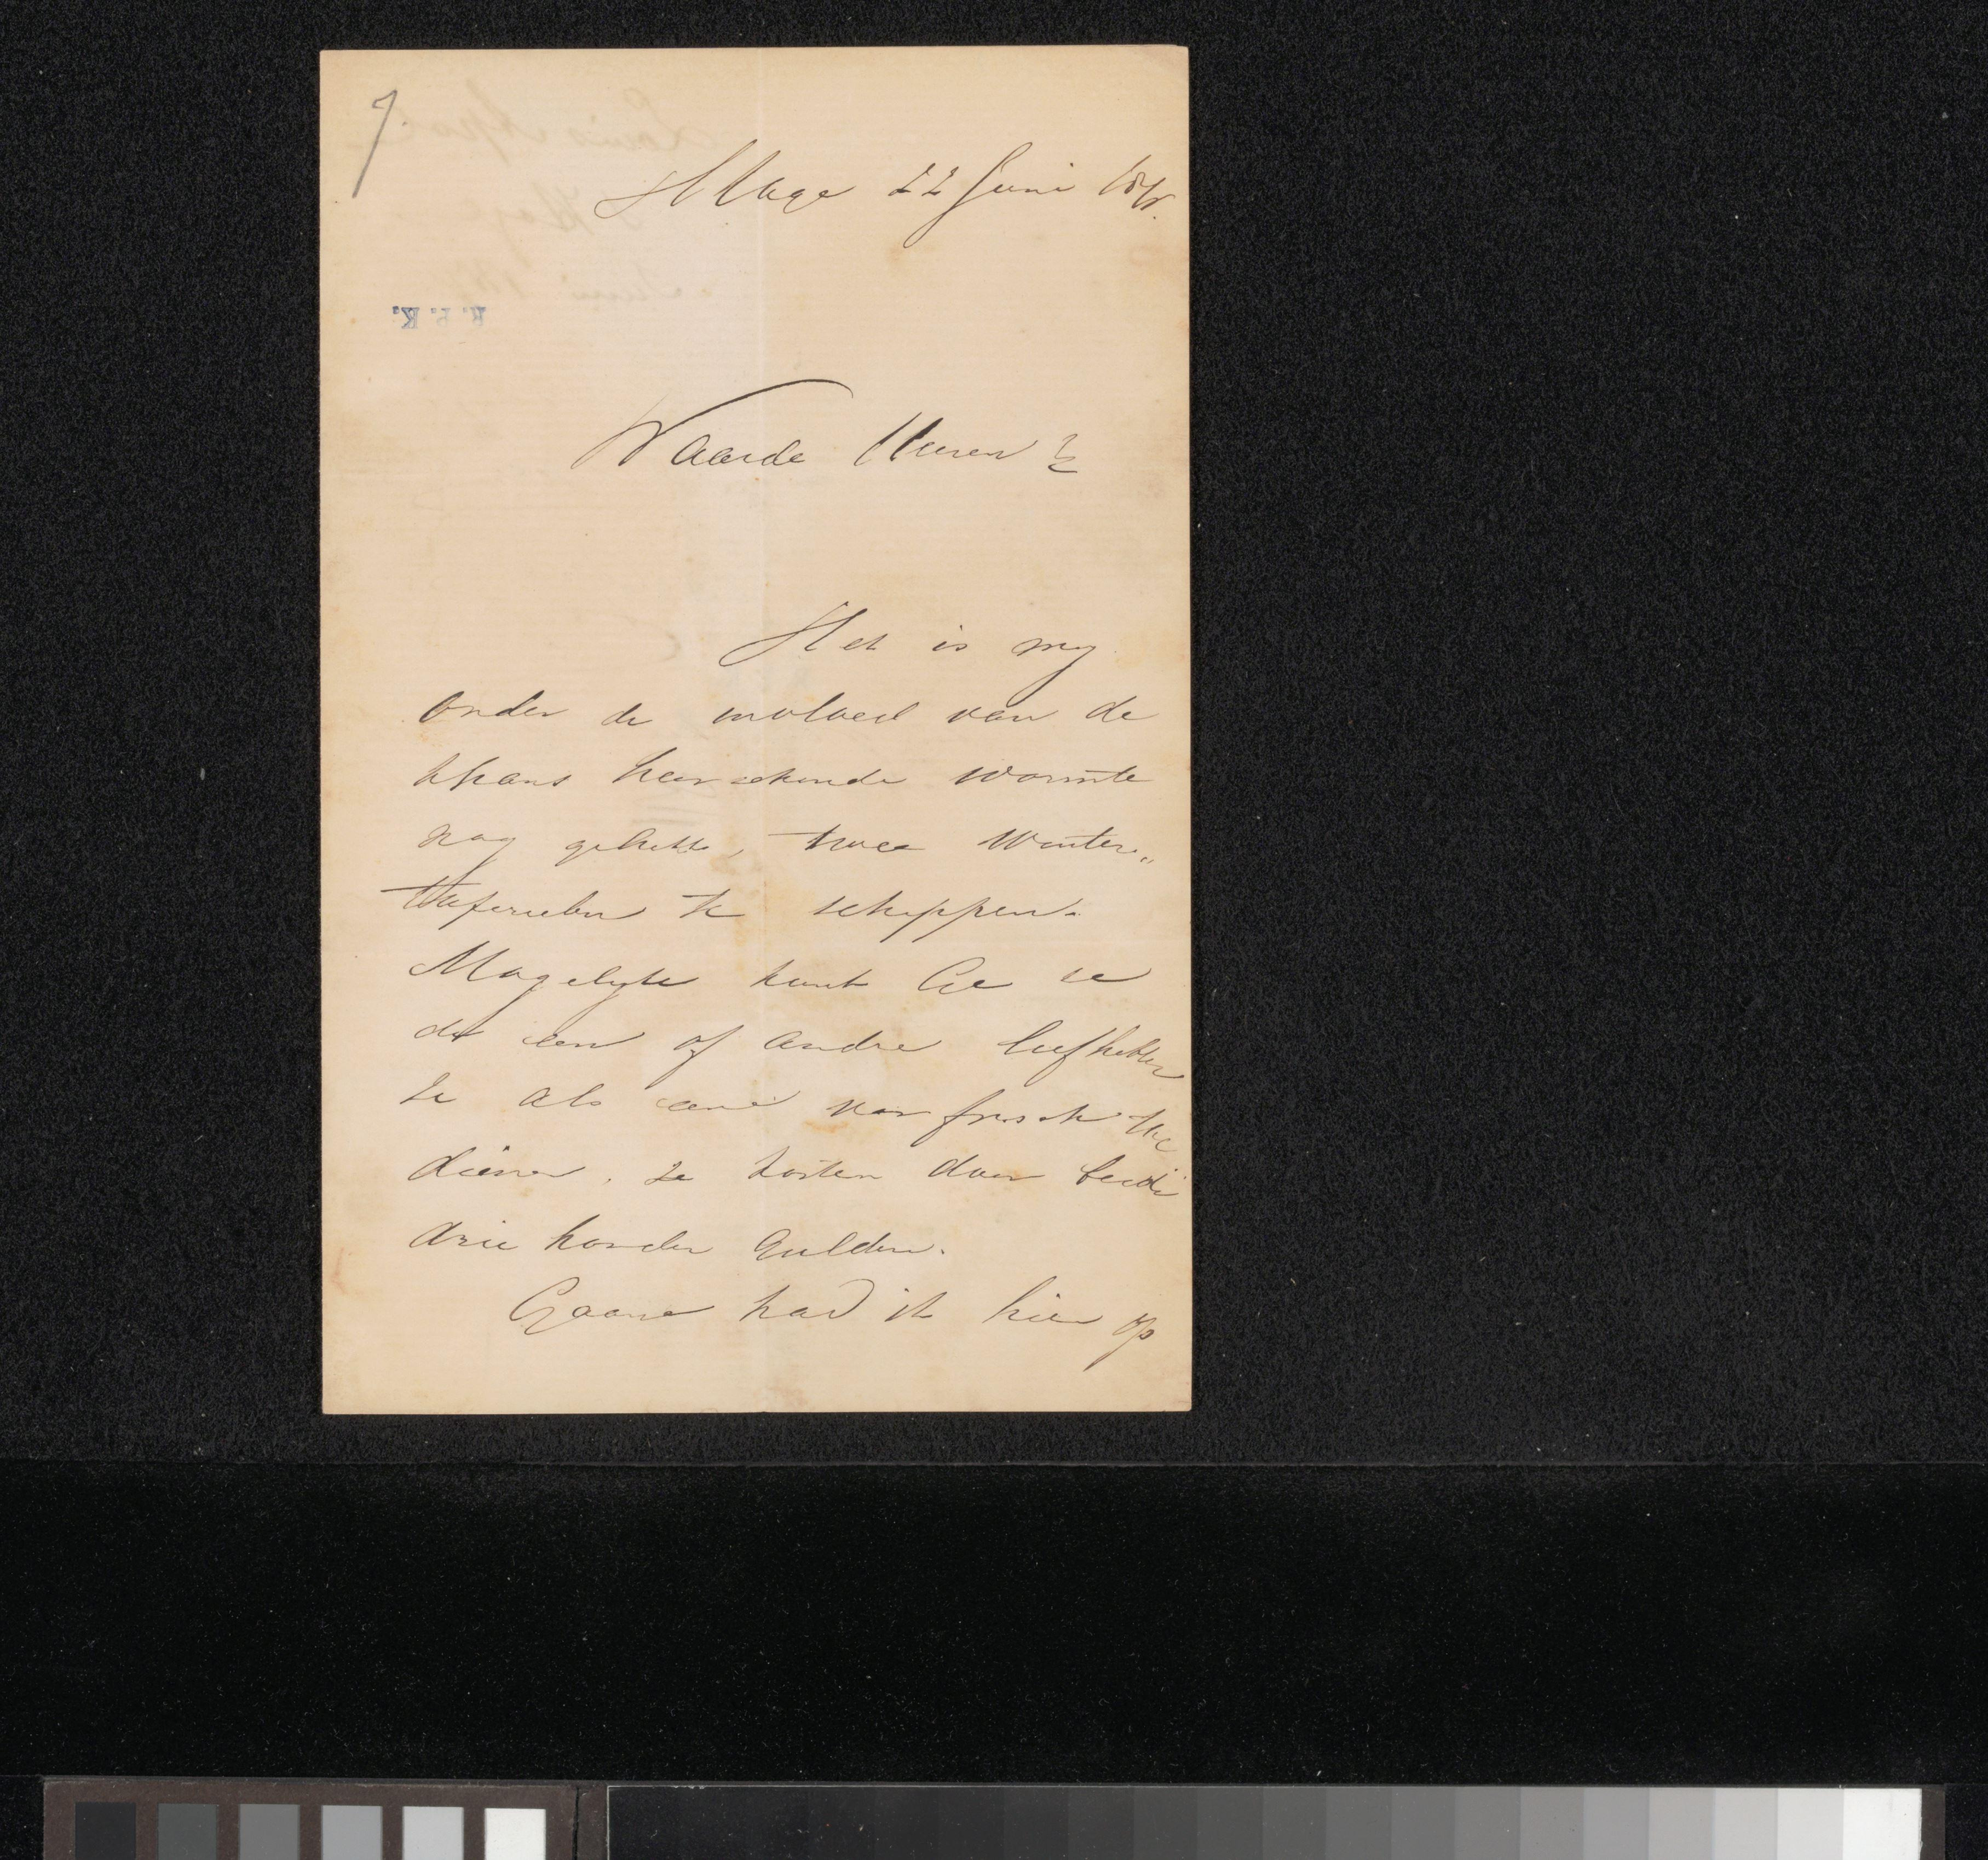 7.
Hage 22 Juni
R.P.K.
Waarde Heeren
Het is my
onder de invloed van de
thans heerschende warmte
nog gelukt, twee winter„
tafereelen te scheppen.
Mogelyk kunt Ge ze
de een of andre liefhebber
ze als eene verfrissch
dienen. ze kosten door beide
drie honder gulden.
Gaarne had ik hier op